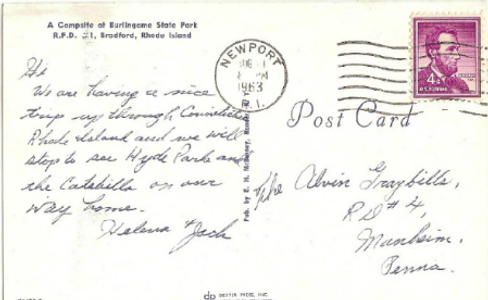 A Campsite at Burlingame State Park
R.F.D. #1, Bradford, Rhode Island
Hi
We are having a nice
trip up through Connecticut
Rhode Island and we will
stop to see Hyde Park and
the Catskills on our
way home.
Helena & Jack
NEWPORT
AUG
PM
1963
R.I.
4¢
U.S. POSTAGE
Post Card
The Alvin Graybills,
R D # 4,
Manheim,
Penna.
Pub. by E. H.
dp DEXTER PRESS, INC.